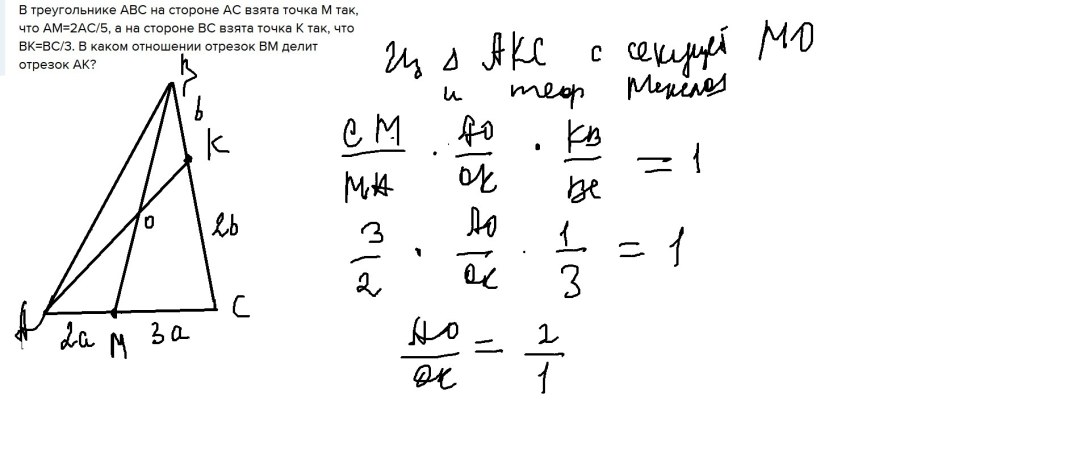 В треугольнике ABC на стороне AC взята точка M так,
что AM=2AC/5, а на стороне BC взята точка K так, что
BK=BC/3. В каком отношении отрезок BM делит
отрезок AK?
Из Δ AKC с секущей MO
и теор Менелоя
CM/MA · AO/OK · KB/BC = 1
3/2 · AO/OK · 1/3 = 1
AO/OK = 2/1
B
b
K
O
2b
A
2a
M
3a
C